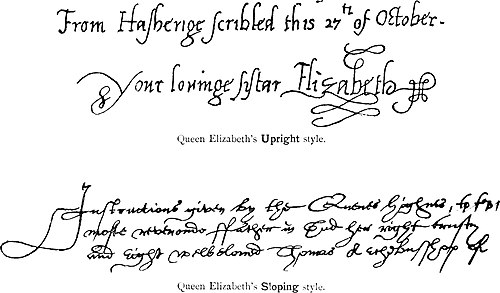 From Hasherige scribled this 27th of October.
Your louinge sistar Elizabeth
Queen Elizabeth's Upright style.
Instructions given by the Quenes highnes, to
moste reverende ffather in God her right trusty
and right welbeloved Thomas of
Queen Elizabeth's Sloping style.